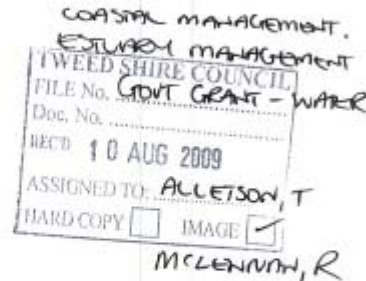 COASTAL MANAGEMENT.
ESTUARY MANAGEMENT
TWEED SHIRE COUNCIL
FILE No. GOVT GRANT - WATER
Doc. No.
REC'D 10 AUG 2009
ASSIGNED TO: ALLETSON, T
HARD COPY IMAGE ✓
MCLENNAN, R